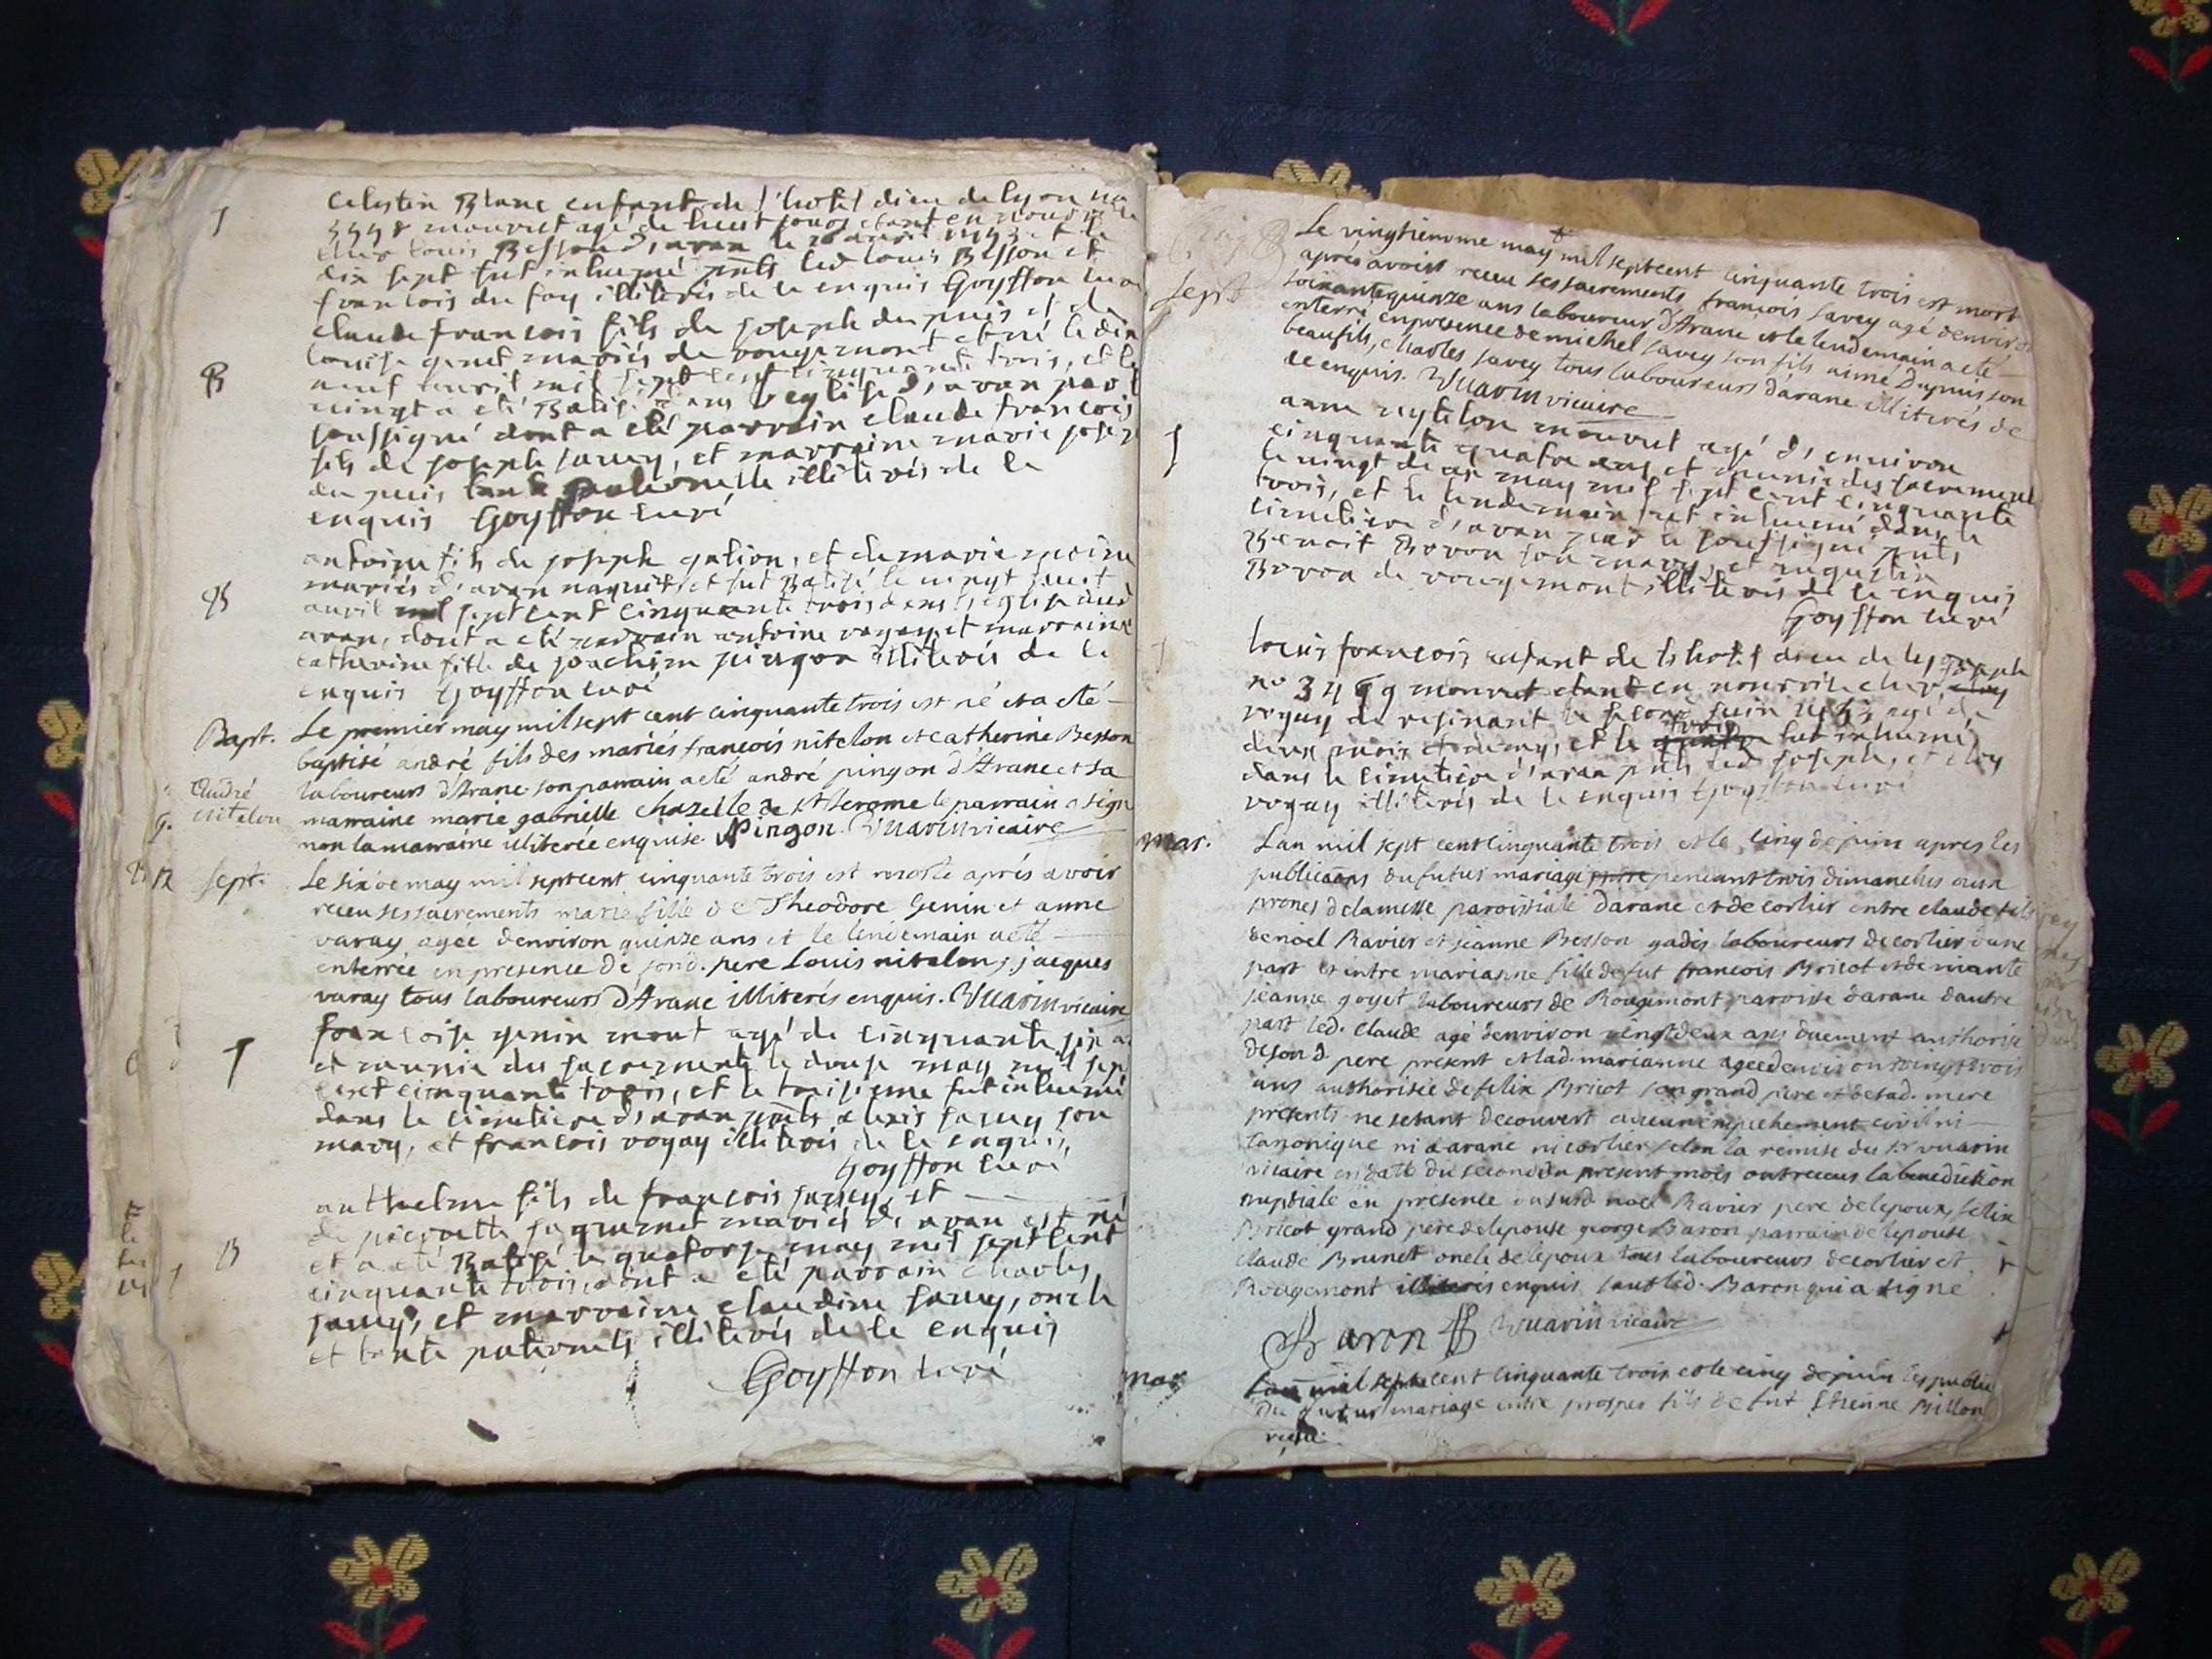 S
Celestin Blanc enfant de l'hotel dieu de lyon no
mourut agé de huit jours etant en nourrice
ches louis Besson d'aran le avril 1753 et le
dix sept fut inhumé pnts led louis Besson et
francois du fay illiterés de ce enquis Goyffon curé
B
claude francois fils de joseph dupuis et de
louise genet mariés de rougemont et né le dix
neuf avril mil sept cent cinquante trois, et le
vingt a eté Batisé dans l'eglise d'aran par le
soussigné dont a eté parrain claude francois
fils de joseph savey, et marraine marie josep
du puis tante paternelle illiterés de ce
enquis Goyffon curé
B
antoine fils de joseph gation, et de marie
mariés d'aran naquit, et fut Batisé le vingt huit
avril mil sept cent cinquante trois dans l'eglise dud
aran, dont a eté parrain antoine vogay, et marraine
catherine fille de joachim pingon illiterés de ce
enquis Goyffon curé
Bapt.
andré
nitelon
Le premier may mil sept cent cinquante trois est né et a eté
baptisé andré fils des mariés francois nitelon et catherine Besson
laboureurs d'Arane son parrain a eté andré pingon d'Arane et sa
marraine marie gabrielle chazelle de st Jerome le parrain a signé
non la marraine illiterée enquise. Pingon. Vuarin vicaire
Sept.
Le six de may mil septcent cinquante trois est morte aprés avoir
receu ses sacrements marie fille de Theodore Genin et anne
varay agée denviron quinze ans et le lendemain a eté
enterrée en presence de sond. pere Louis nitelon, jacques
varay tous laboureurs d'Arane illiterés enquis. Vuarin vicaire
francoise genin mourut agé de cinquante six a
et munie des sacrements le douse may mil sept
cent cinquante trois, et le treisieme fut inhumé
dans le cimetiere d'aran pnts alexis savey son
mary, et francois vogay illiterés de ce enquis,
Goyffon curé
B
anthelme fils de francois savey, et
de pierrette jugurnet mariés d'aran est né
et a eté Batisé le quatorse may mil sept cent
cinquante trois, dont a eté parrain charles
savey, et marraine claudine savey, oncle
et tante paternels illiterés de ce enquis
Goyffon curé
Sept
Le vingtieme may mil septcent cinquante trois est mort
aprés avoir receu ses sacrements francois Savey agé denviron
soixantequinze ans laboureur d'Arane et le lendemain a eté
enterré en presence de michel savey son fils aimé Dupuis son
beaufils, charles savey tous laboureurs d'arane illiterés de
ce enquis. Vuarin vicaire
anne nytelon mourut agé d'environ
cinquante quatre ans et munie des sacrements
le vingt deux may mil sept cent cinquante
trois, et le lendemain fut inhumé dans le
cimetiere d'aran par le soussigné pnts
Benoit Boron son mary, et augustin
Boron de rougemont illiterés de ce enquis
Goyffon curé
louis francois enfant de l'hotel dieu de lyon
no 3469 mourut etant en nourrice chez joseph
vogay de resinant le second juin 1753 agé de
deux mois et demy, et le trois fut inhumé
dans le cimetiere d'aran pnts led joseph, et eloy
vogay illiterés de ce enquis Goyffon curé
Mar.
Lan mil sept cent cinquante trois et le cinq de juin apres les
publicaons du futur mariage pendant trois dimanches aux
prones de la messe paroissiale d'arane et de corlier entre claude fils
de noel Ravier et jeanne Besson gadis laboureurs de corlier dune
part et entre marianne fille de fut francois Bricot et de
jeanne goyet laboureurs de Rougemont paroisse d'arane dautre
part led. claude agé denviron vingtdeux ans duement authorisé
de son d. pere present et lad. marianne agée denviron vingt trois
ans authorisée de felix Bricot son grand pere et de sad. mere
presents ne setant decouvert aucun empechement civil ni
canonique ni a arane ni corlier selon la remise du sr vuarin
vicaire en date du second du present mois ont receus la benediction
nuptiale en presence dusurd. noel Ravier pere de lepoux, felix
Bricot grand pere de lepouse george Baron parrain de lepouse
claude Brunet oncle de lepoux tous laboureurs de corlier et
Rougemont illiterés enquis sauf led. Baron qui a signé
Baron Vuarin vicaire
Mar
Lan mil sept cent cinquante trois et le cinq de juin les public
du futur mariage entre prosper fils de fut Etienne Billon